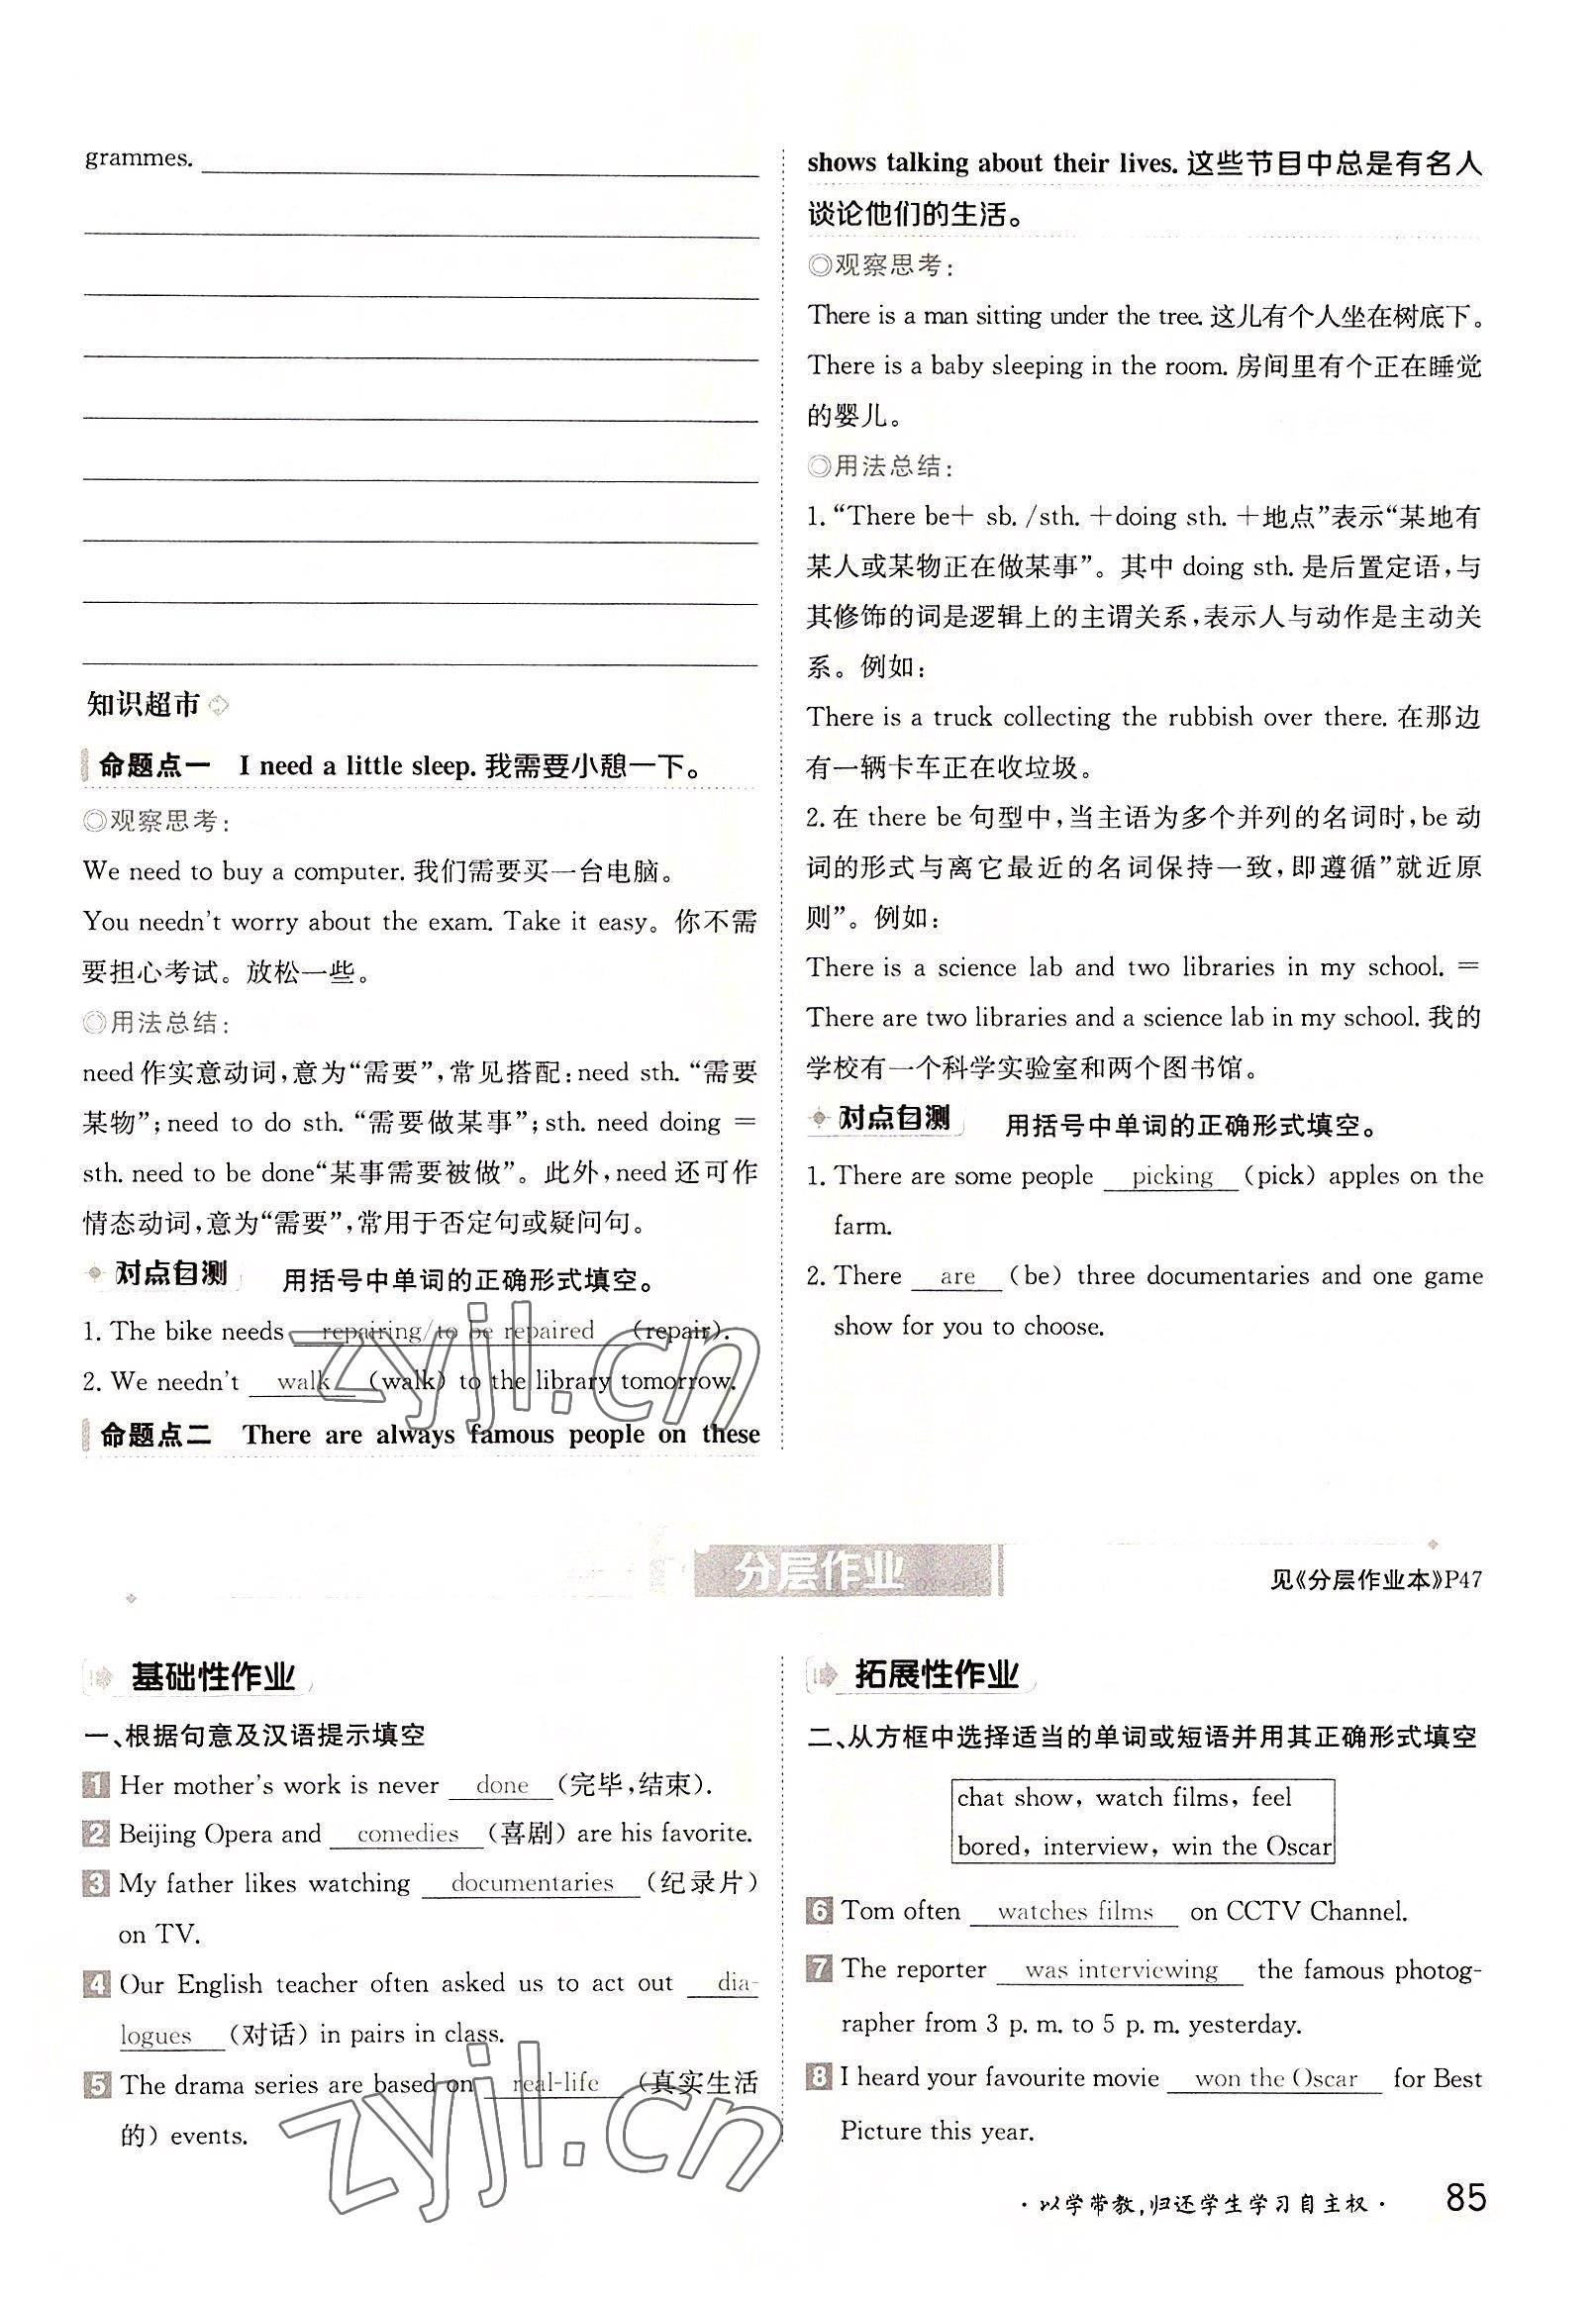 grammes.
知识超市
命题点一 I need a little sleep. 我需要小憩一下。
◎观察思考:
We need to buy a computer. 我们需要买一台电脑。
You needn't worry about the exam. Take it easy。你不需
要担心考试。放松一些。
◎用法总结:
need 作实意动词,意为“需要”,常见搭配:need sth. “需要
某物”;need to do sth. “需要做某事”;sth. need doing =
sth. need to be done“某事需要被做”。此外,need 还可作
情态动词,意为“需要”,常用于否定句或疑问句。
对点自测 用括号中单词的正确形式填空。
1. The bike needs repairing/to be repaired (repair).
2. We needn't walk (walk) to the library tomorrow.
命题点二 There are always famous people on these
shows talking about their lives. 这些节目中总是有名人
谈论他们的生活。
◎观察思考:
There is a man sitting under the tree. 这儿有个人坐在树底下。
There is a baby sleeping in the room. 房间里有个正在睡觉
的婴儿。
◎用法总结:
1. “There be+ sb. /sth. +doing sth. +地点”表示“某地有
某人或某物正在做某事”。其中 doing sth. 是后置定语,与
其修饰的词是逻辑上的主谓关系,表示人与动作是主动关
系。例如:
There is a truck collecting the rubbish over there. 在那边
有一辆卡车正在收垃圾。
2. 在 there be 句型中,当主语为多个并列的名词时,be 动
词的形式与离它最近的名词保持一致,即遵循”就近原
则”。例如:
There is a science lab and two libraries in my school. =
There are two libraries and a science lab in my school. 我的
学校有一个科学实验室和两个图书馆。
对点自测 用括号中单词的正确形式填空。
1. There are some people picking (pick) apples on the
farm.
2. There are (be) three documentaries and one game
show for you to choose.
分层作业
见《分层作业本》P47
基础性作业
一、根据句意及汉语提示填空
1 Her mother's work is never done (完毕,结束).
2 Beijing Opera and comedies (喜剧) are his favorite.
3 My father likes watching documentaries (纪录片)
on TV.
4 Our English teacher often asked us to act out dia-
logues (对话) in pairs in class.
5 The drama series are based on real-life (真实生活
的) events.
拓展性作业
二、从方框中选择适当的单词或短语并用其正确形式填空
chat show, watch films, feel
bored, interview, win the Oscar
6 Tom often watches films on CCTV Channel.
7 The reporter was interviewing the famous photog-
rapher from 3 p. m. to 5 p. m. yesterday.
8 I heard your favourite movie won the Oscar for Best
Picture this year.
· 以学带教,归还学生学习自主权 · 85
zyjl.cn
zyjl.cn